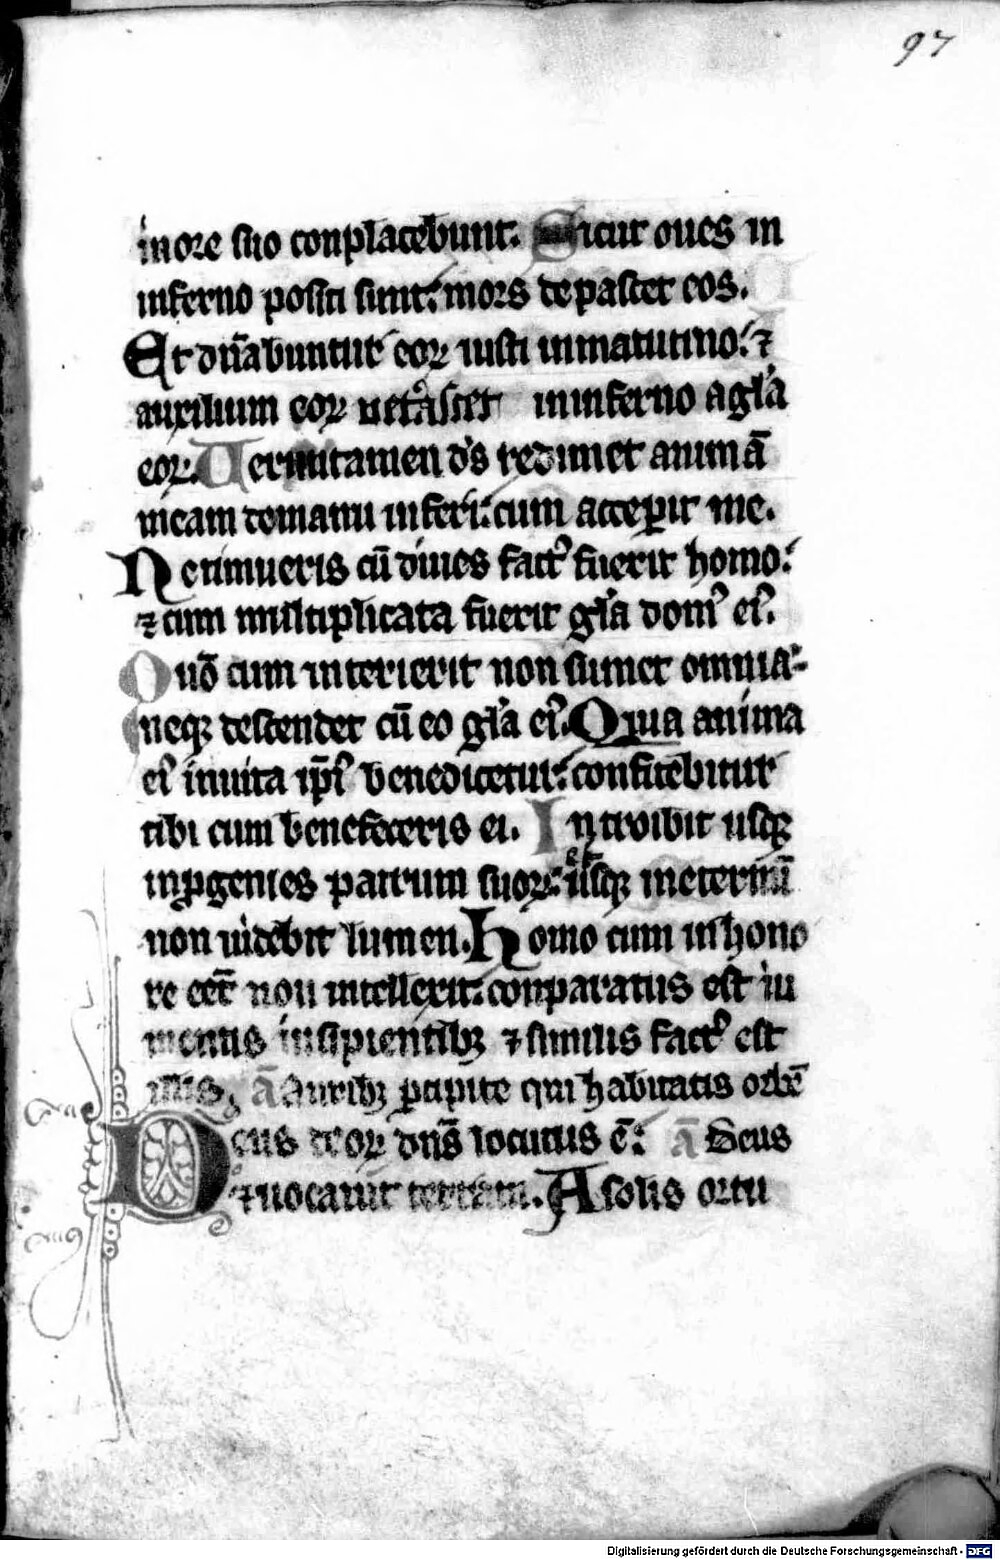 97
in ore suo conplacebunt. Sicut oues in
inferno positi sunt: mors depascet eos.
Et dn̄abuntur eoꝝ iusti inmatutino: ⁊
auxilium eoꝝ ueterascet ininferno a gl̓a
eoꝝ. Uerumtamen ds̄ redimet animā
meam demanu inferi: cum acceperit me.
Ne timueris cū diues factꝰ fuerit homo:
⁊ cum multiplicata fuerit gl̓a domꝰ eiꝰ.
Quō cum interierit non sumet omnia:
neqꝫ descendet cū eo gl̓a eiꝰ. Quia anima
eiꝰ inuita ip̄iꝰ benedicetur: confitebitur
tibi cum benefeceris ei. Introibit usqꝫ
inꝓgenies patrum suoꝝ: et usqꝫ ineternū
non uidebit lumen. Homo cum inhono
re eēt non intellexit: conparatus est iu
mentis insipientibꝫ ⁊ similis factꝰ est
illis. ā Auribꝫ ꝑcipite qui habitatis orbē
Deus deoꝝ dn̄s locutus ē: ā Deus
⁊ uocauit terram. A solis ortu
Digitalisierung gefördert durch die Deutsche Forschungsgemeinschaft - DFG